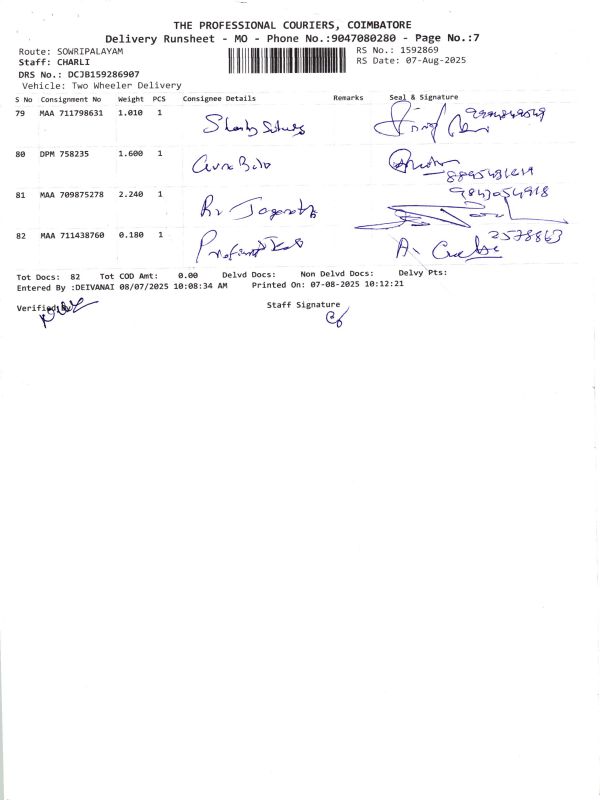 THE PROFESSIONAL COURIERS, COIMBATORE
Delivery Runsheet - MO - Phone No.:9047080280 - Page No.:7
Route: SOWRIPALAYAM RS No.: 1592869
Staff: CHARLI RS Date: 07-Aug-2025
DRS No.: DCJB159286907
Vehicle: Two Wheeler Delivery
S No Consignment No Weight PCS Consignee Details Remarks Seal & Signature
79 MAA 711798631 1.010 1
80 DPM 758235 1.600 1
81 MAA 709875278 2.240 1 9843054918
82 MAA 711438760 0.180 1 2578863
Tot Docs: 82 Tot COD Amt: 0.00 Delvd Docs: Non Delvd Docs: Delvy Pts:
Entered By :DEIVANAI 08/07/2025 10:08:34 AM Printed On: 07-08-2025 10:12:21
Verified By Staff Signature